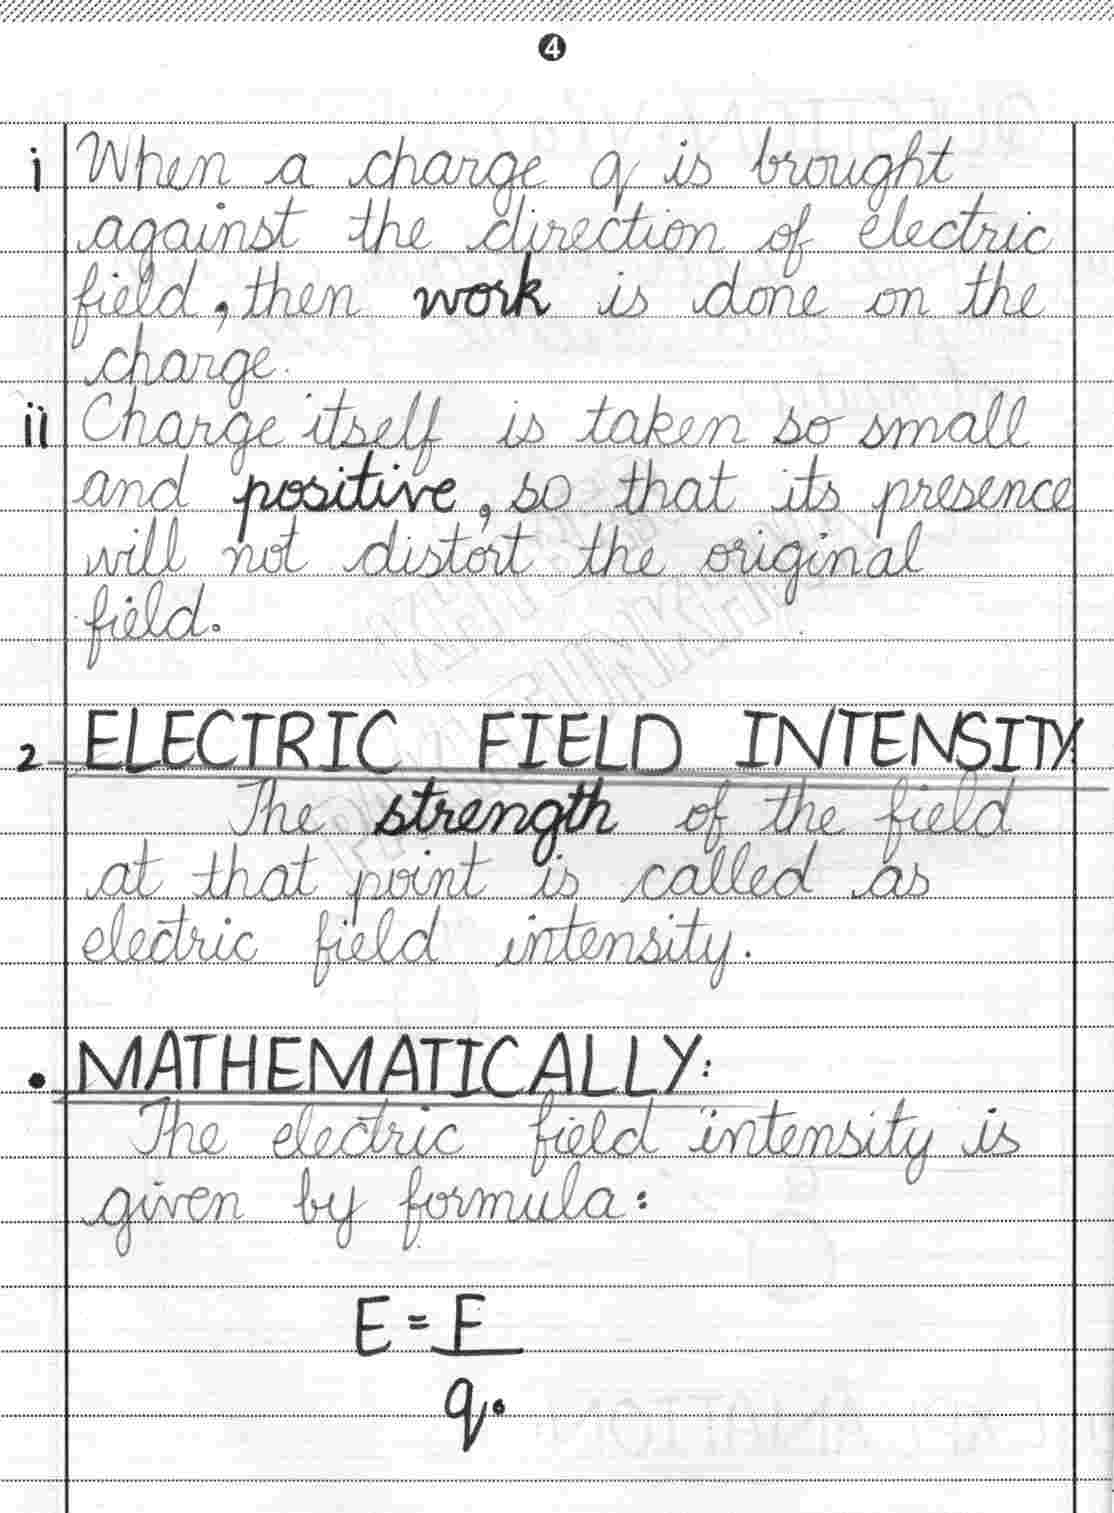 4
i When a charge q is brought
against the direction of electric
field, then work is done on the
charge.
ii Charge itself is taken so small
and positive, so that its presence
will not distort the original
field.
2 ELECTRIC FIELD INTENSITY:
The strength of the field
at that point is called as
electric field intensity.
• MATHEMATICALLY:
The electric field intensity is
given by formula:
E = F
q₀